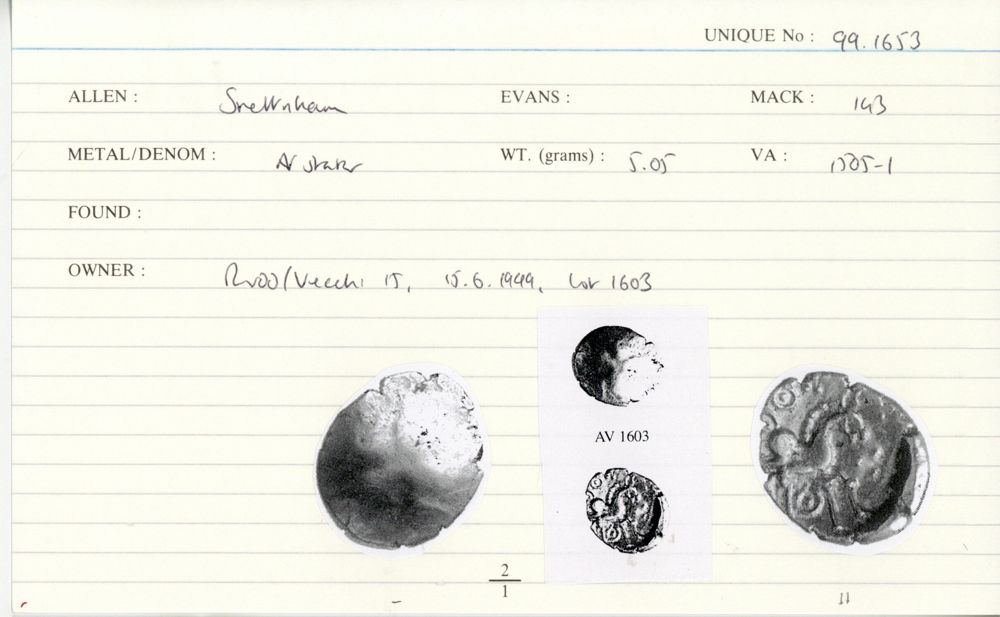 UNIQUE No : 99.1653
ALLEN : Snettisham EVANS : MACK : 143
METAL/DENOM : AV stater WT. (grams) : 5.05 VA : 1505-1
FOUND :
OWNER : Rudd/Vecchi 15, 15.6.1999, Lot 1603
AV 1603
2
1